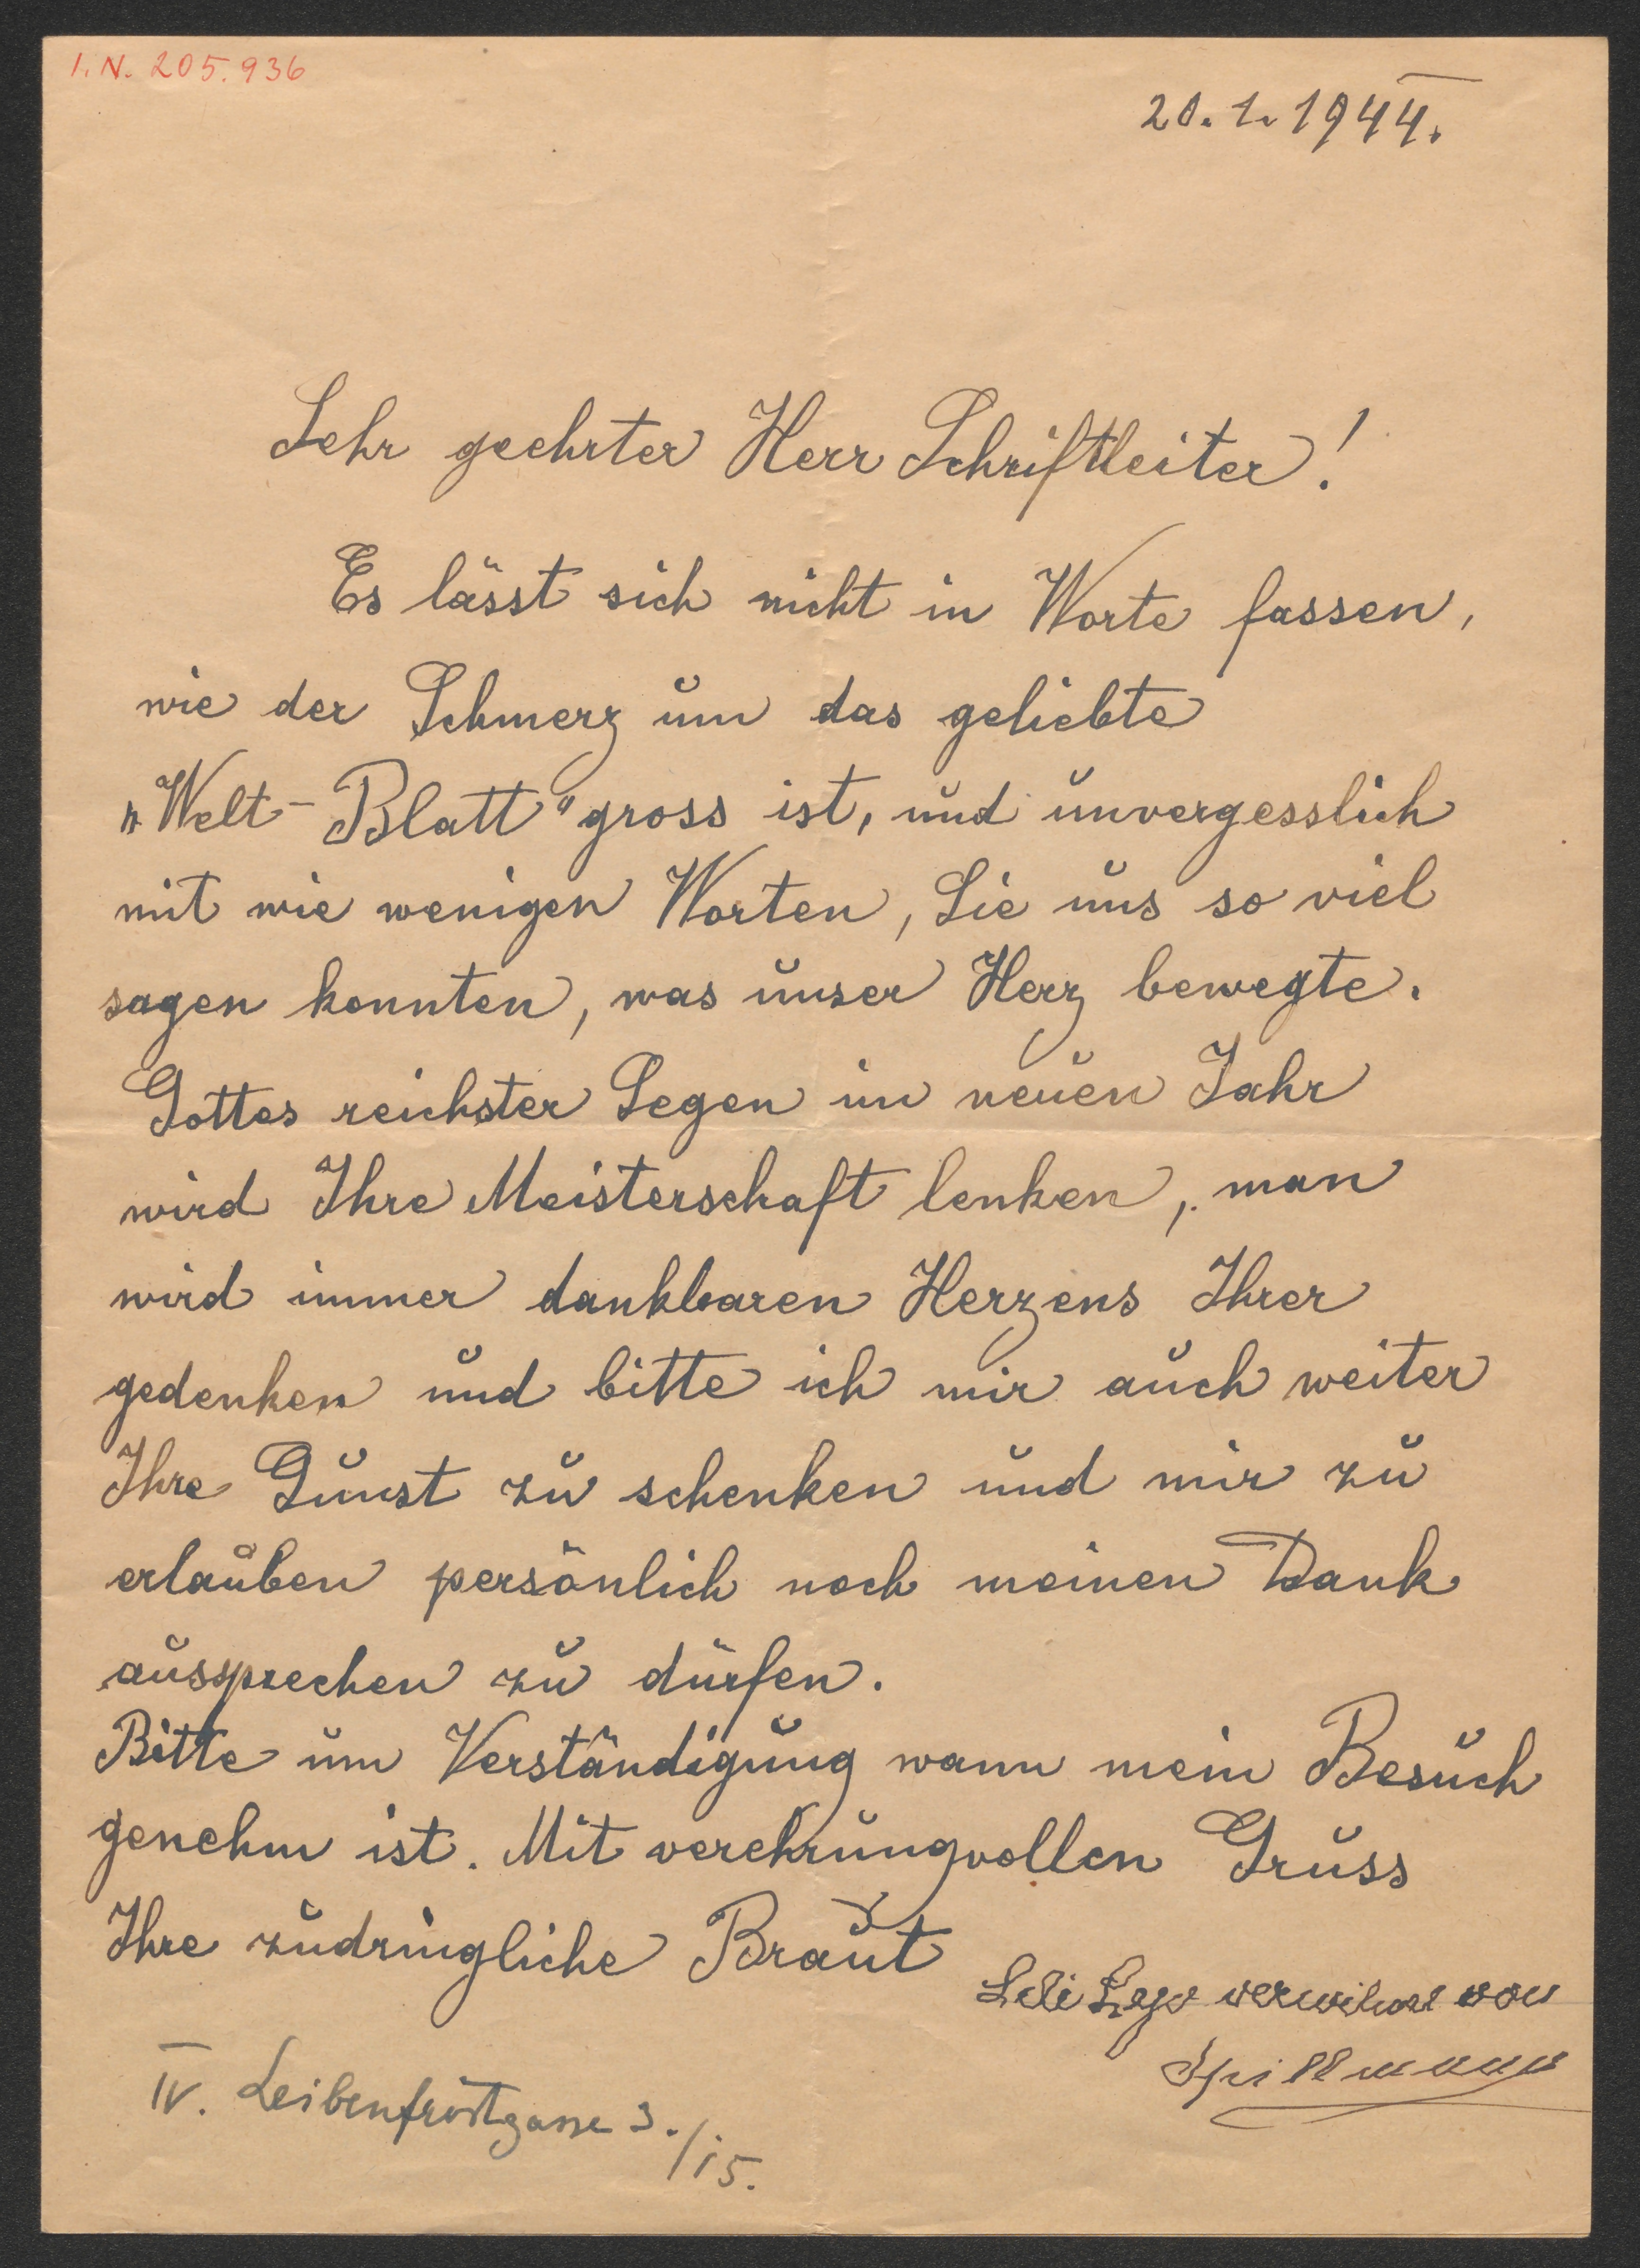 I. N. 205.936
20. 1. 1944.
Sehr geehrter Herr Schriftleiter!
Es lässt sich nicht in Worte fassen,
wie der Schmerz um das geliebte
„Welt-Blatt" gross ist, und unvergesslich
mit wie wenigen Worten, Sie uns so viel
sagen konnten, was unser Herz bewegte.
Gottes reichster Segen im neuen Jahr
wird Ihre Meisterschaft lenken, man
wird immer dankbaren Herzens Ihrer
gedenken und bitte ich mir auch weiter
Ihre Gunst zu schenken und mir zu
erlauben persönlich noch meinen Dank
aussprechen zu dürfen.
Bitte um Verständigung wann mein Besuch
genehm ist. Mit verehrungvollen Gruss
Ihre zudringliche Braut
von
Spillmann
IV. Leibenfrostgasse 3./15.